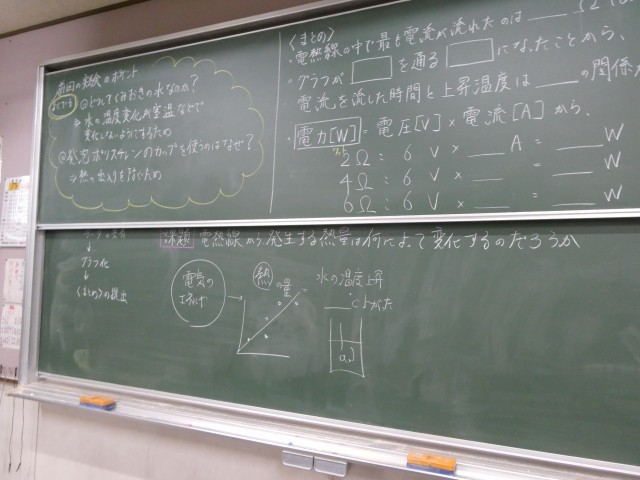 前回の実験のポイント
①どうしてくみおきの水なのか?
⇒水の温度変化が室温などで
変化しないようにするため
②発泡ポリスチレンのカップを使うのはなぜ?
⇒熱の出入りを防ぐため
〈まとめ〉
・電熱線の中で最も電流が流れたのは ___ Ω
・グラフが □ を通る □ になったことから、
電流を流した時間と上昇温度は ___ の関係が
・電力[W] = 電圧[V] × 電流[A] から、
2Ω : 6 V × ___ A = ___ W
4Ω : 6 V × ___ = ___ W
6Ω : 6 V × ___ = ___ W
↓
グラフ化
↓
〈まとめ〉の提出
課題 電熱線から発生する熱量は何によって変化するのだろうか
電気の
エネルギー
熱の量
水の温度上昇
___℃上がった